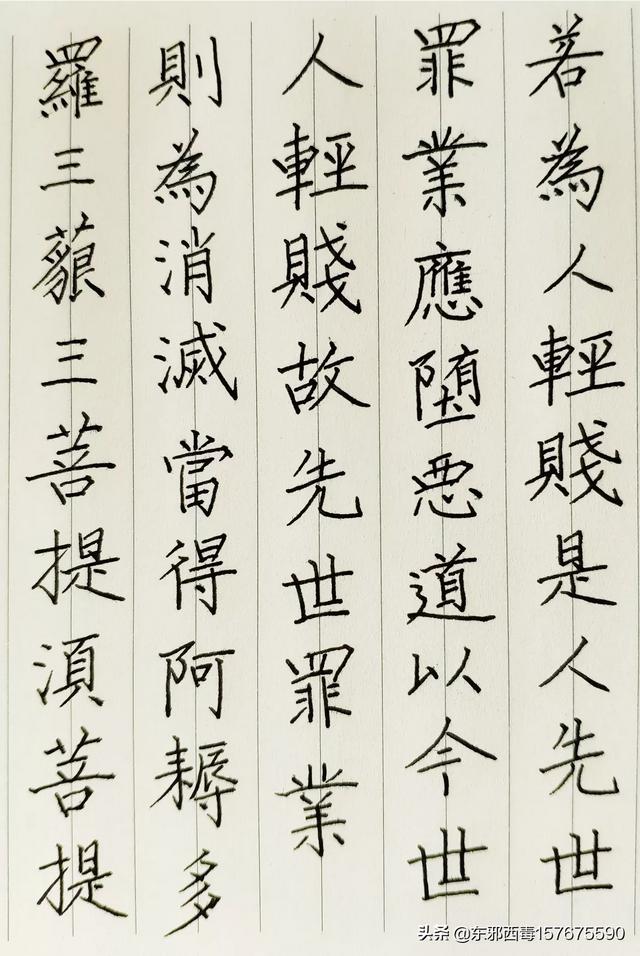 若為人輕賤是人先世
罪業應堕惡道以今世
人輕賤故先世罪業
則為消滅當得阿耨多
羅三藐三菩提須菩提
头条 @东邪西毒157675590